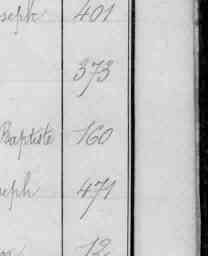 seph 401
373
Baptiste 160
seph 471
12